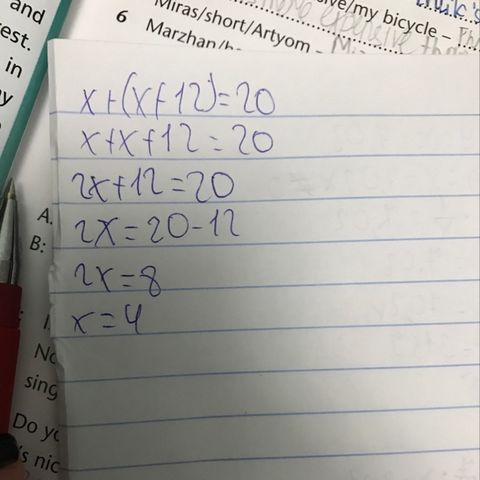 and
est.
in
6 Miras/short/Artyom –
ive/my bicycle –
Marzhan/h
more expensive than
x+(x+12)=20
x+x+12=20
2x+12=20
2x=20-12
2x=8
x=4
A.
B:
sing
Do yo
's nic